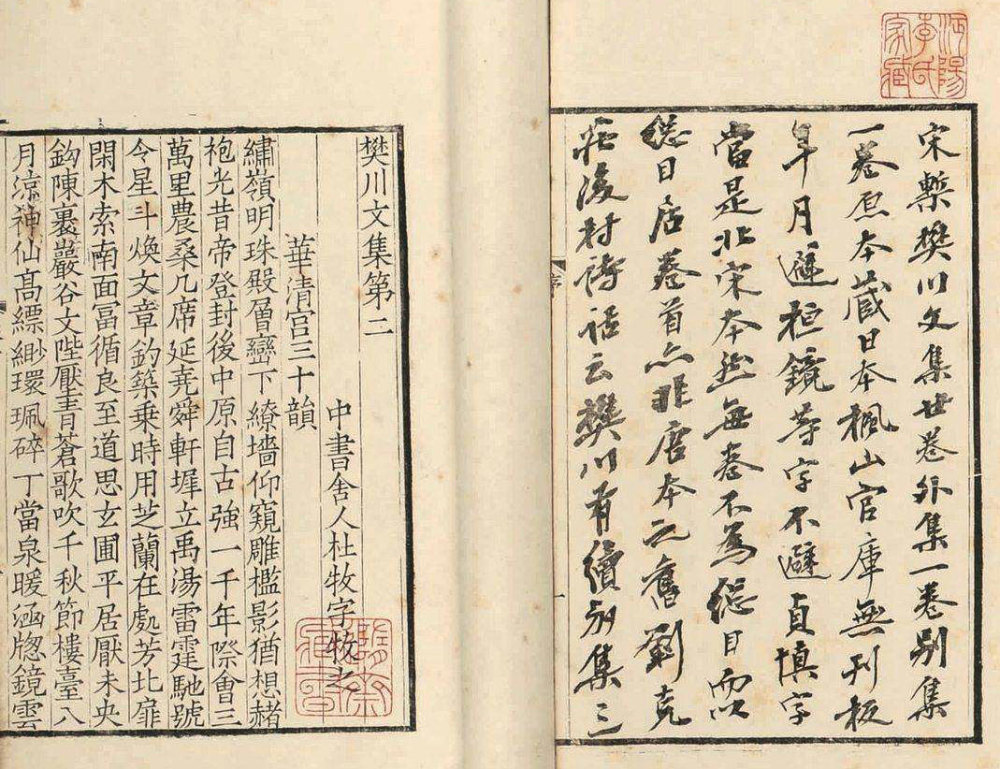 沔陽
李氏
家臧
宋槧樊川文集廿卷外集一卷別集
一卷原本藏日本楓山官庫無刊板
年月避桓鏡等字不避貞慎字
當是北宋本然每卷不爲總目而以
總目居卷首亦非唐本之舊劉克
莊後村詩話云樊川有續別集三
序
一
樊川文集第二
中書舍人杜牧字牧之
華清宮三十韻
繡嶺明珠殿層巒下繚墻仰窺雕檻影猶想赭
袍光昔帝登封後中原自古強一千年際會三
萬里農桑几席延堯舜軒墀立禹湯雷霆馳號
令星斗煥文章釣築乗時用芝蘭在處芳北扉
閑木索南面富循良至道思玄圃平居厭未央
鈎陳裏巖谷文陛壓青蒼歌吹千秋節樓臺八
月涼神仙髙縹緲環珮碎丁當泉暖涵牎鏡雲